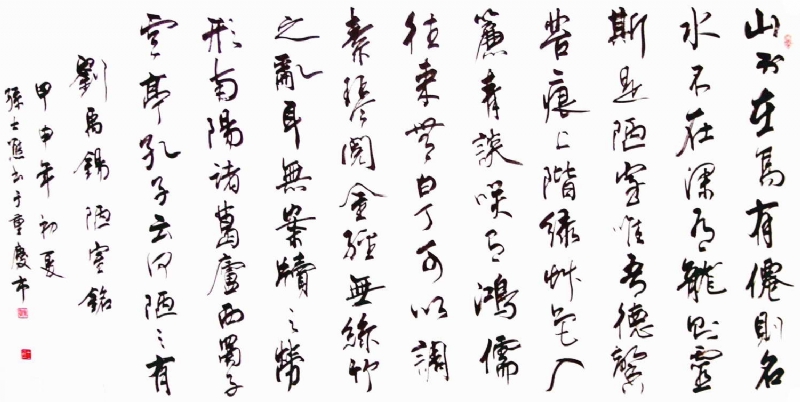 山不在高有僊則名
水不在深有龍則靈
斯是陋室唯吾德馨
苔痕上階綠艸色入
簾青談咲有鴻儒
往來無白丁可以調
素琴閱金經無絲竹
之亂耳無案牘之勞
形南陽諸葛廬西蜀子
雲亭孔子云何陋之有
劉禹錫陋室銘
甲申年初夏
孫士書于重慶市